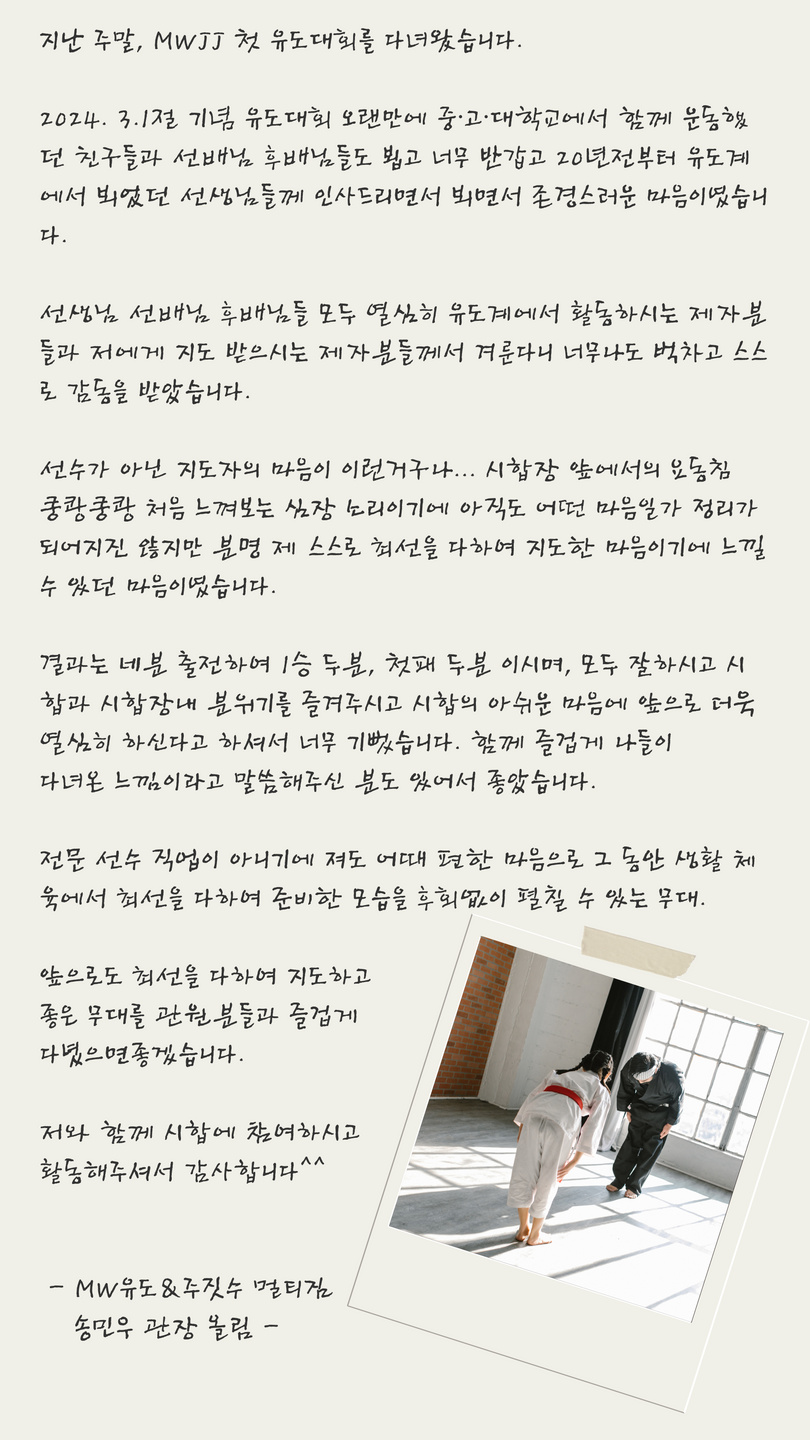 지난 주말, MWJJ 첫 유도대회를 다녀왔습니다.
2024. 3.1절 기념 유도대회 오랜만에 중·고·대학교에서 함께 운동했
던 친구들과 선배님 후배님들도 뵙고 너무 반갑고 20년전부터 유도계
에서 뵈었던 선생님들께 인사드리면서 뵈면서 존경스러운 마음이였습니
다.
선생님 선배님 후배님들 모두 열심히 유도계에서 활동하시는 제자분
들과 저에게 지도 받으시는 제자분들께서 겨룬다니 너무나도 벅차고 스스
로 감동을 받았습니다.
선수가 아닌 지도자의 마음이 이런거구나... 시합장 앞에서의 요동침
쿵쾅쿵쾅 처음 느껴보는 심장 소리이기에 아직도 어떤 마음일가 정리가
되어지진 않지만 분명 제 스스로 최선을 다하여 지도한 마음이기에 느낄
수 있던 마음이였습니다.
결과는 네분 출전하여 1승 두분, 첫패 두분 이시며, 모두 잘하시고 시
합과 시합장내 분위기를 즐겨주시고 시합의 아쉬운 마음에 앞으로 더욱
열심히 하신다고 하셔서 너무 기뻤습니다. 함께 즐겁게 나들이
다녀온 느낌이라고 말씀해주신 분도 있어서 좋았습니다.
전문 선수 직업이 아니기에 져도 어때 편한 마음으로 그 동안 생활 체
육에서 최선을 다하여 준비한 모습을 후회없이 펼칠 수 있는 무대.
앞으로도 최선을 다하여 지도하고
좋은 무대를 관원분들과 즐겁게
다녔으면좋겠습니다.
저와 함께 시합에 참여하시고
활동해주셔서 감사합니다^^
- MW유도&주짓수 멀티짐
송민우 관장 올림 -